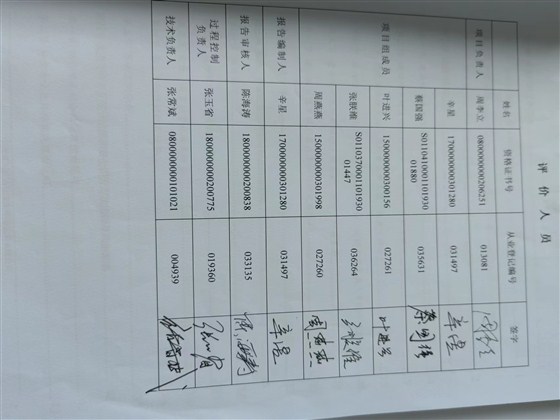 评 价 人 员
姓名 资格证书号 从业登记编号 签字
项目负责人 周李立 0800000000206251 013081
项目组成员 辛星 1700000000301280 031497 辛星
蔡国强 S011041000110193001880 035631 蔡国强
叶进兴 1500000000300156 027261 叶进兴
张朕维 S011037000110193001447 036264
周燕燕 1500000000301998 027260 周燕燕
报告编制人 辛星 1700000000301280 031497 辛星
报告审核人 陈海涛 1800000000200838 033135
过程控制负责人 张玉省 1800000000200775 019360
技术负责人 张常斌 0800000000101021 004939